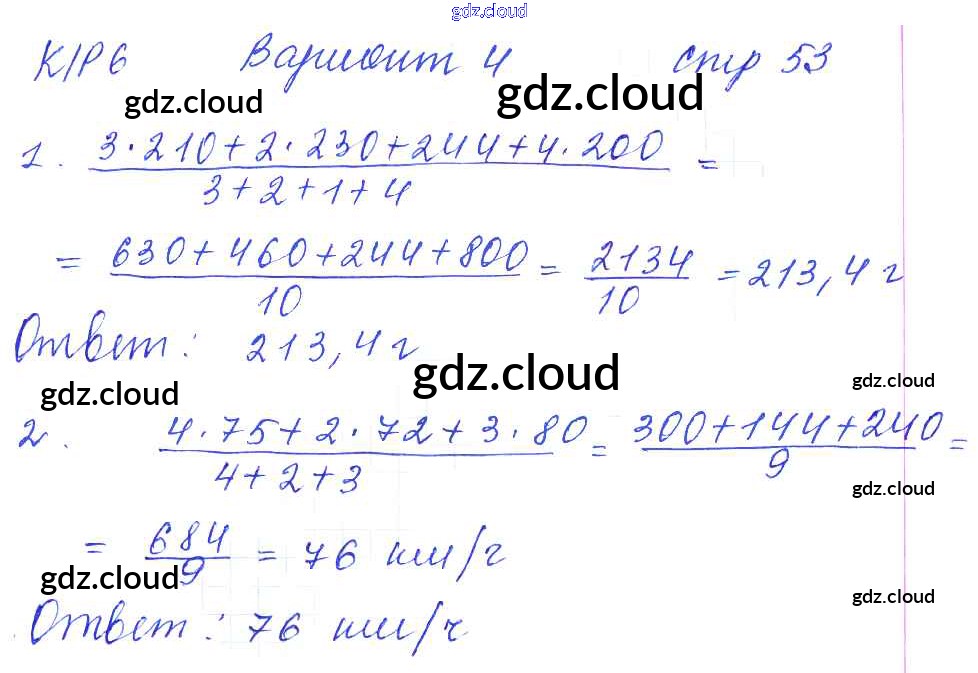 gdz.cloud
К/Р 6 Вариант 4 стр 53
gdz.cloud gdz.cloud
1. (3·210+2·230+244+4·200)/(3+2+1+4) =
= (630+460+244+800)/10 = 2134/10 = 213,4 г
Ответ: 213,4 г
gdz.cloud gdz.cloud gdz.cloud
2. (4·75+2·72+3·80)/(4+2+3) = (300+144+240)/9 =
gdz.cloud
= 684/9 = 76 км/г
gdz.cloud gdz.cloud
Ответ: 76 км/ч